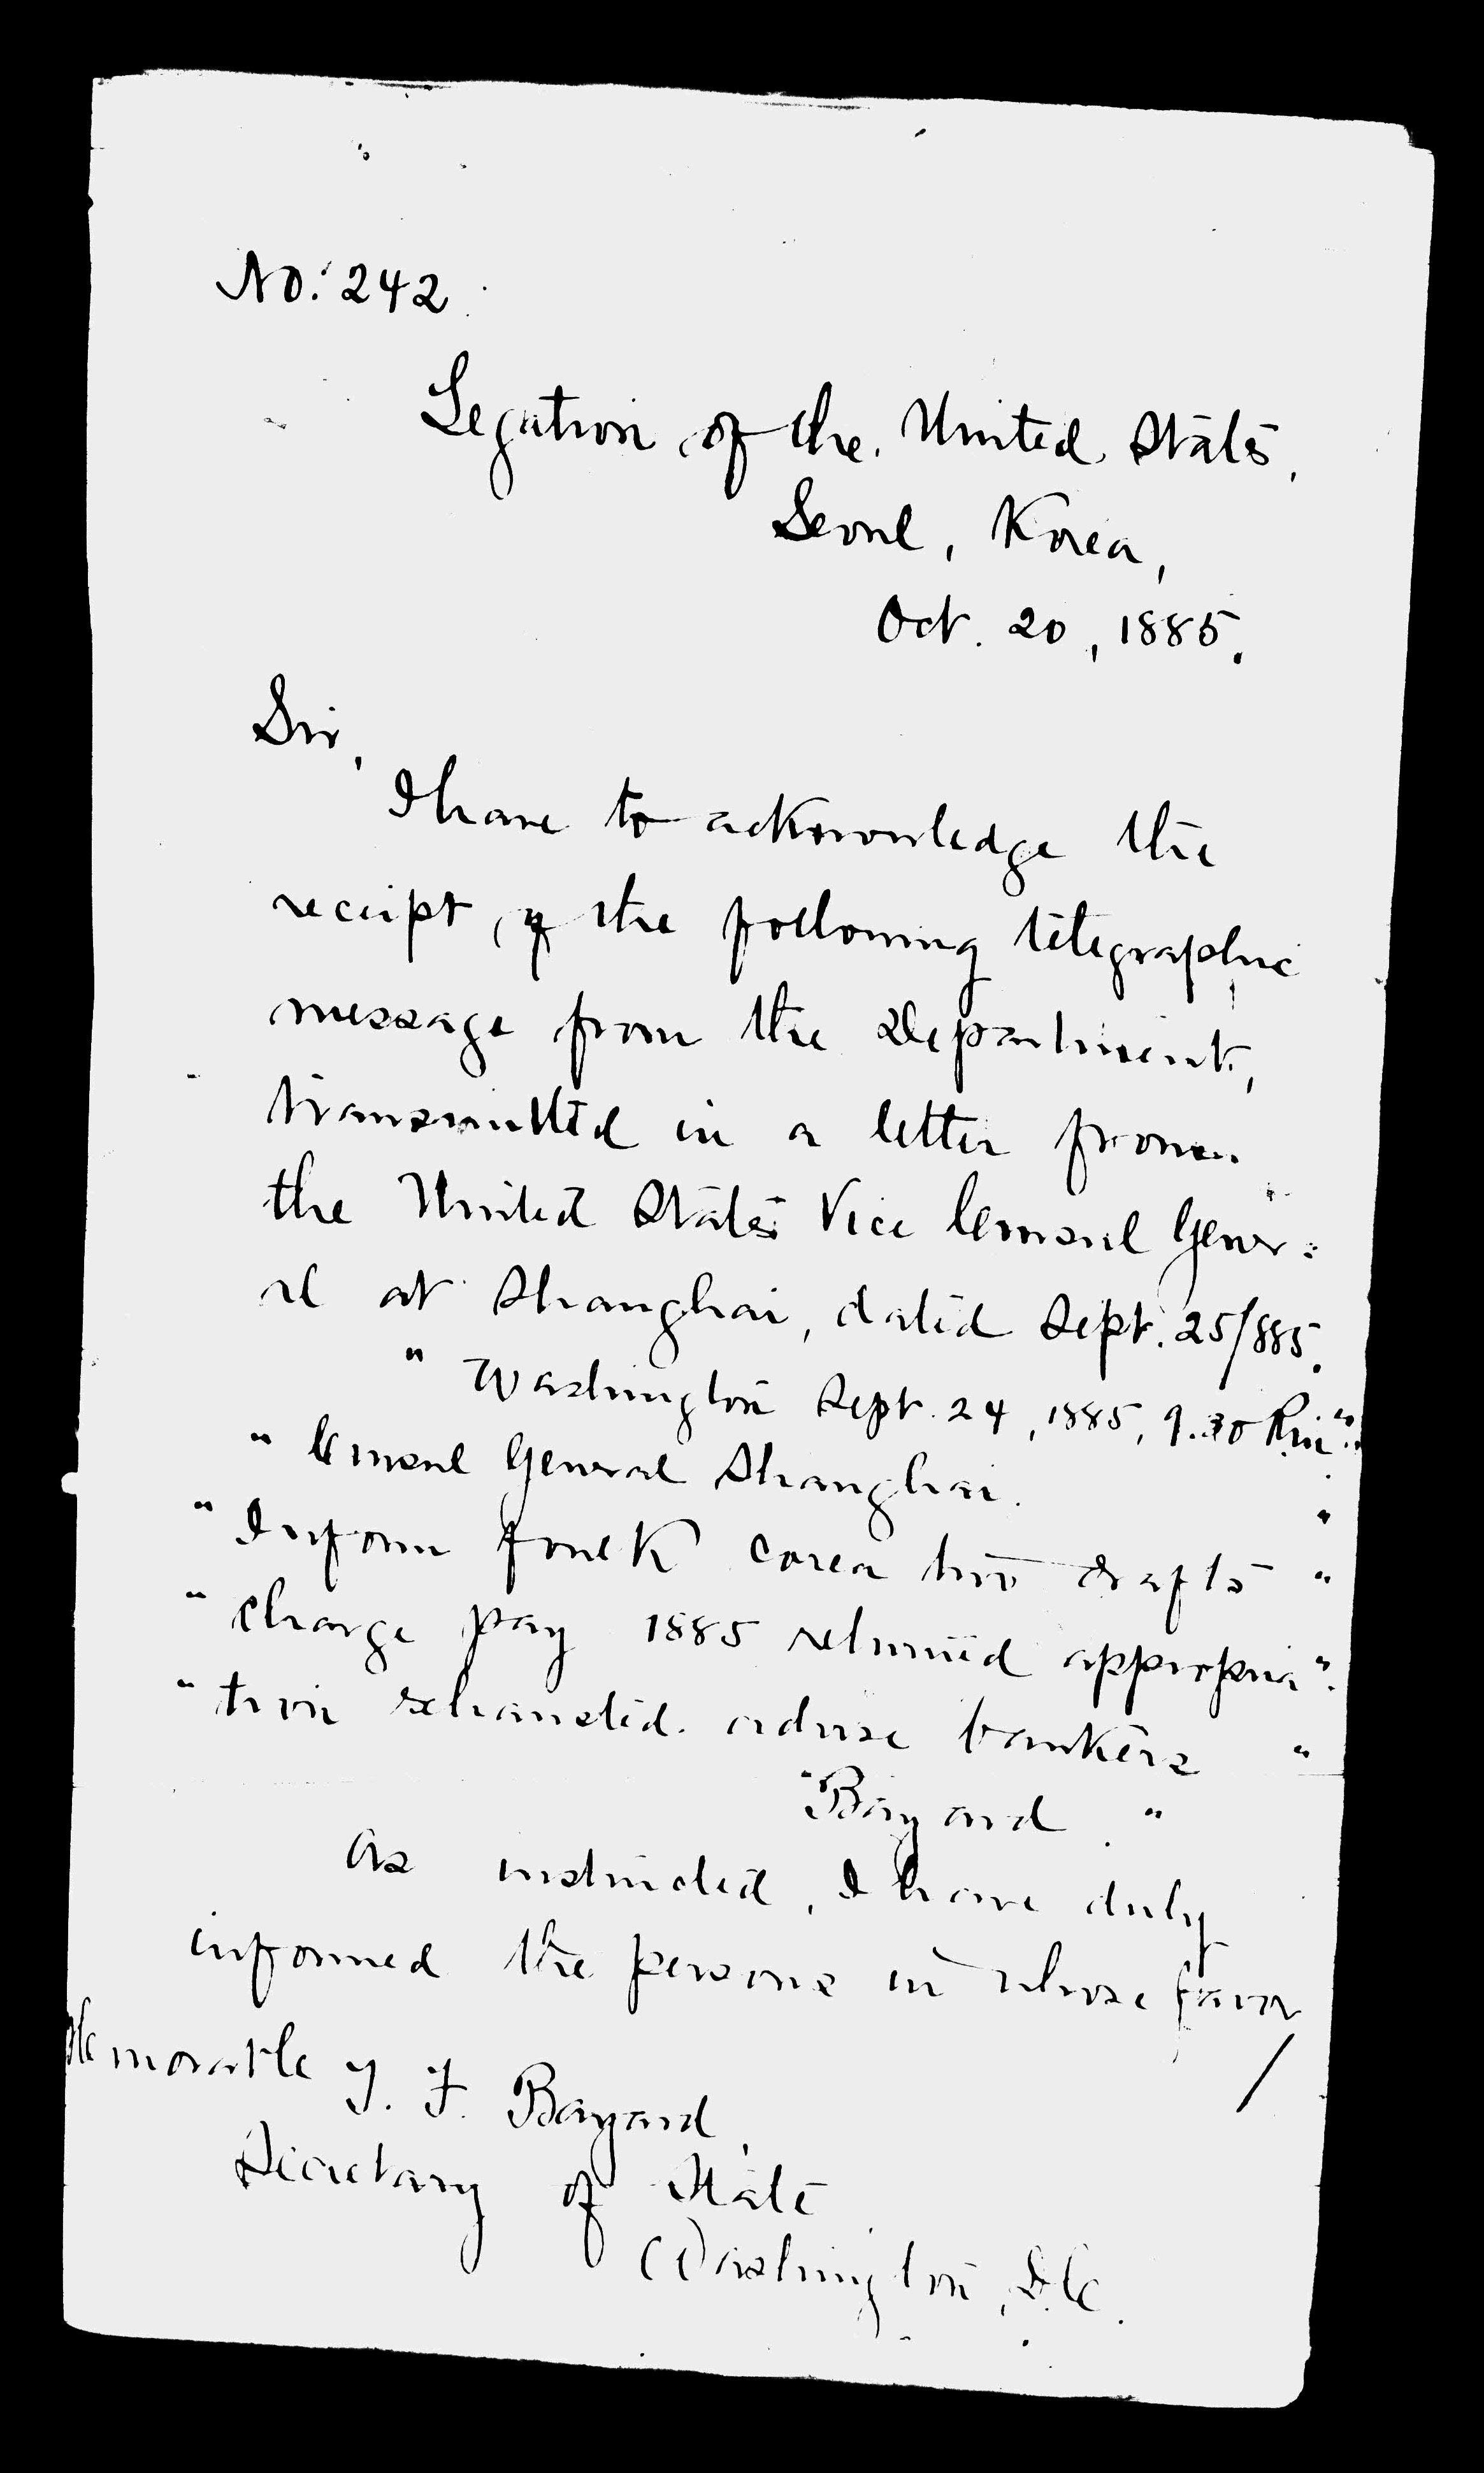 No. 242
Legation of the United States,
Seoul, Korea,
Oct. 20, 1885.
Sir,
I have to acknowledge the
receipt, of the following telegraphic
message from the Department,
transmitted in a letter from
the United States Vice Consul Gener=
al at Shanghai, dated Sept. 25/885.
" Washington Sept. 24, 1885, 9.30 Pm "
" Consul General Shanghai. "
" Inform Foulk Corea two drafts "
" Charge pay 1885 returned appropria "
" tion exhausted. advise bankers "
" Bayard "
As instructed, I have duly
informed the persons in whose favor
Honorable T. F. Bayard,
Secretary of State
Washington, D.C.